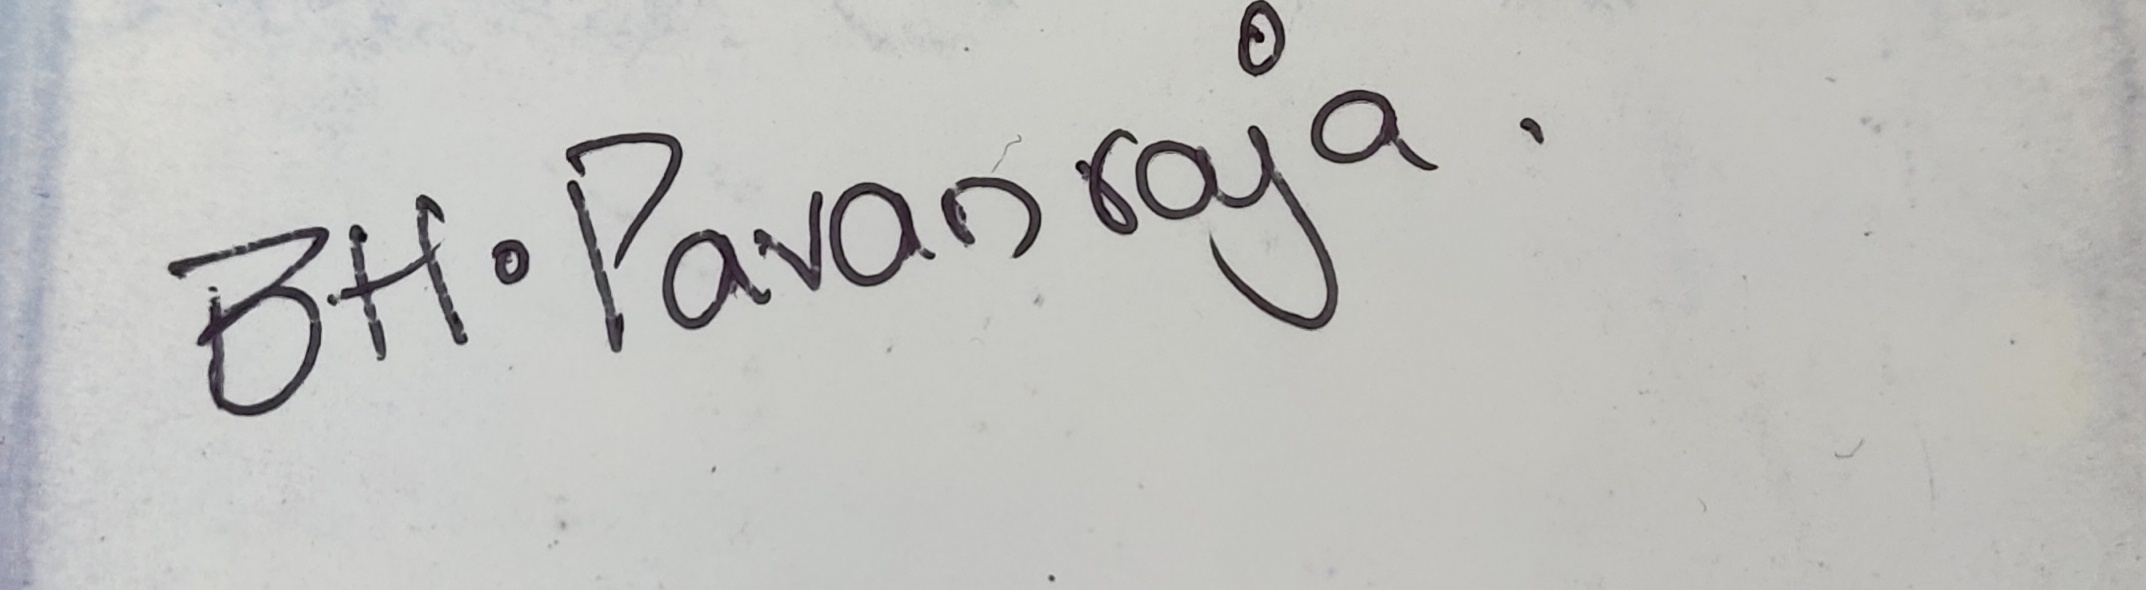 BH. Pavanraja.